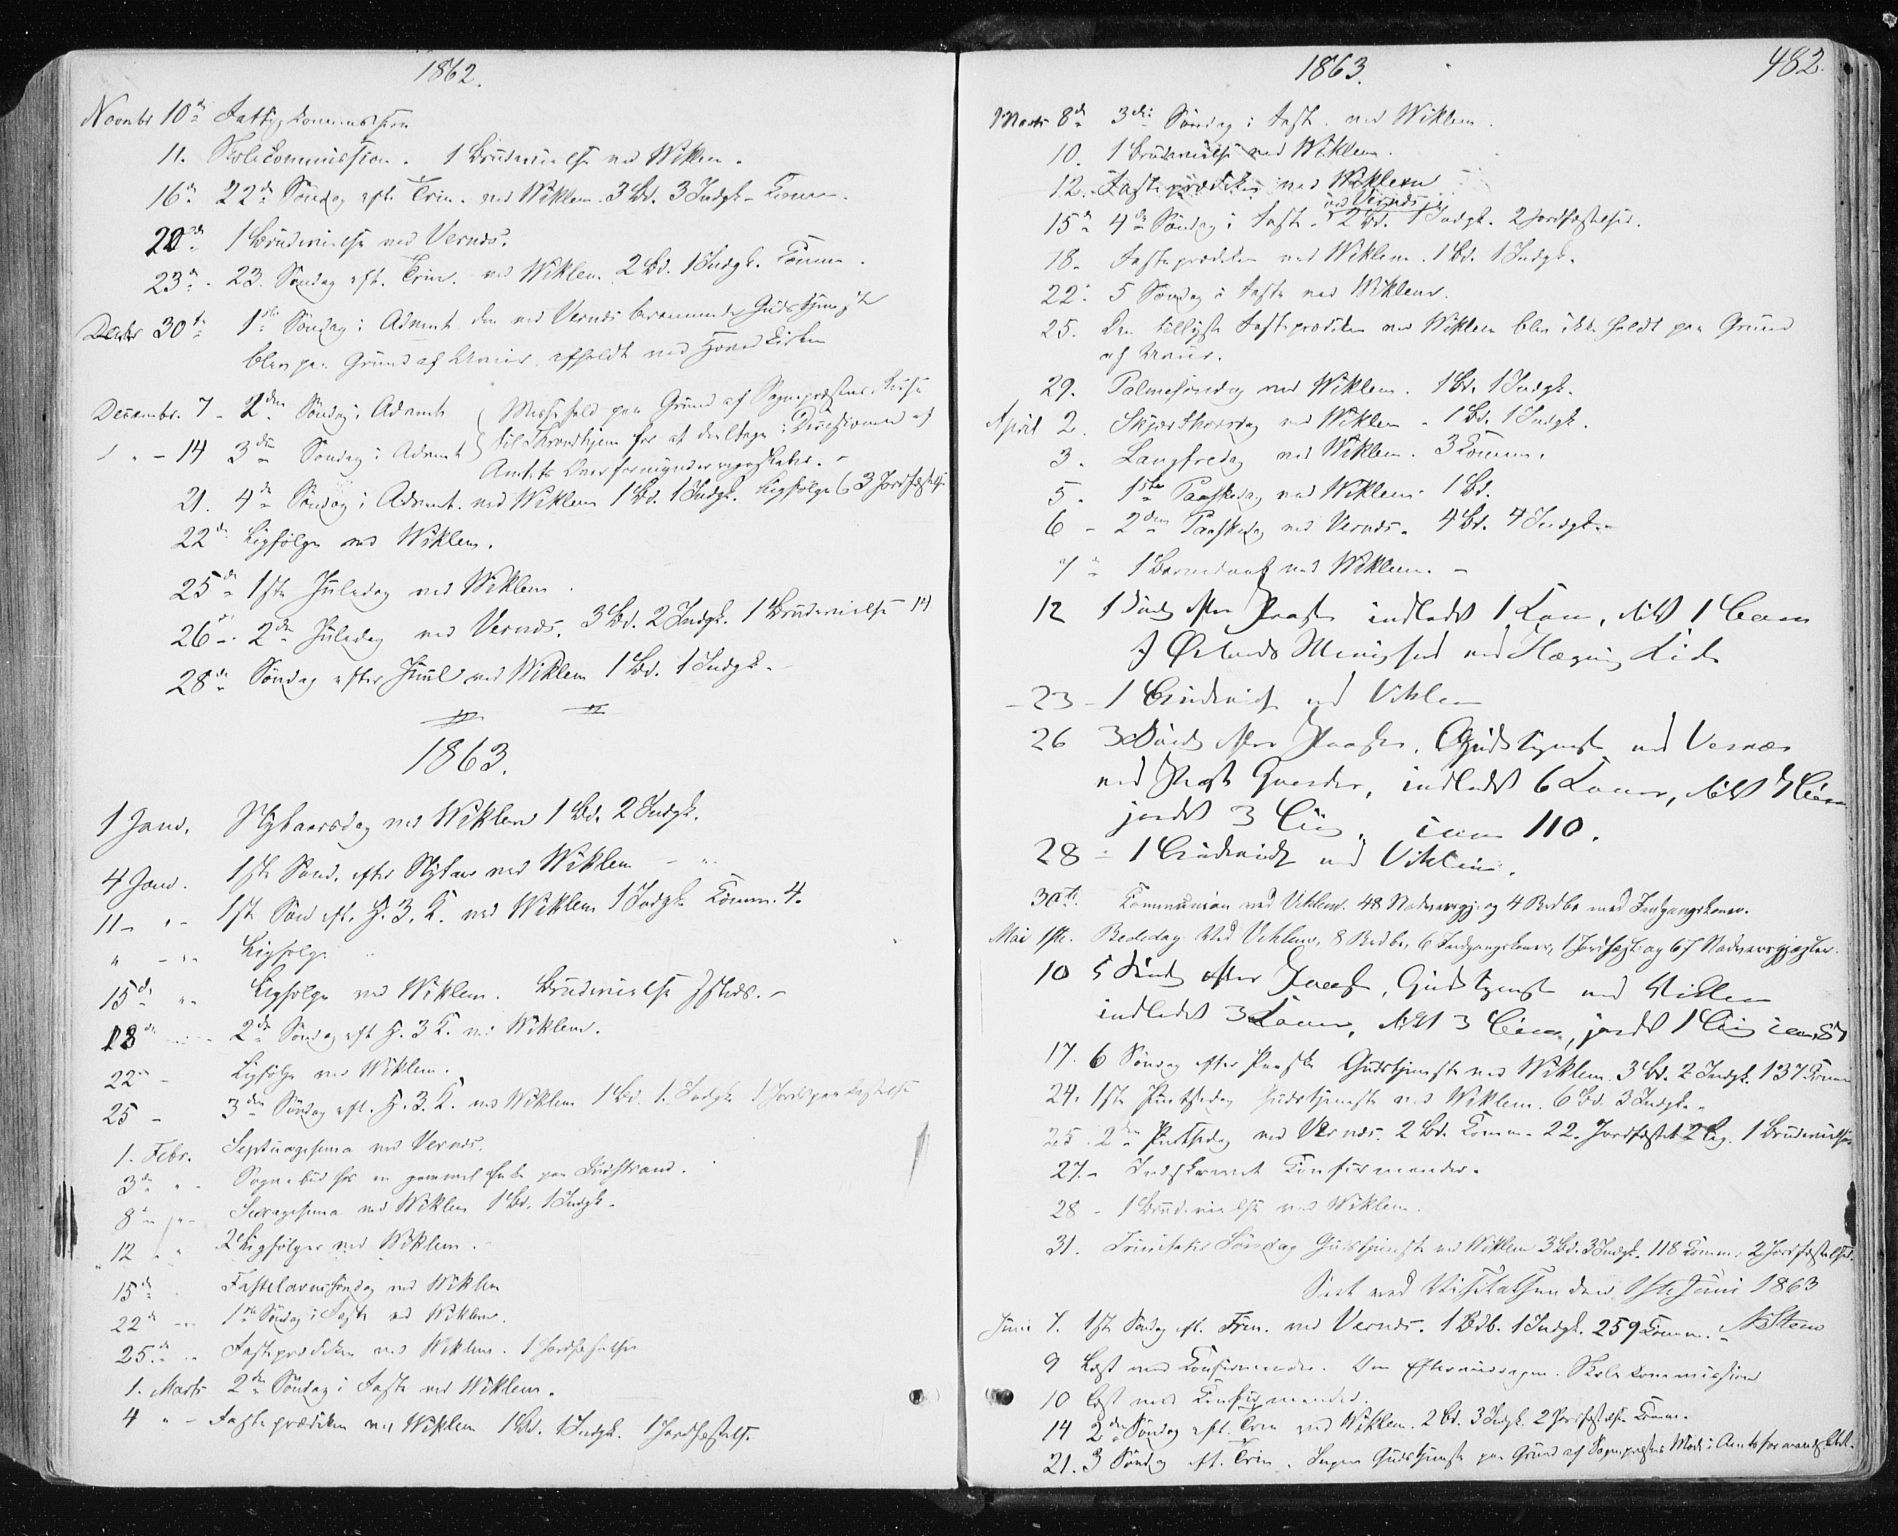 1862.
Novmbr 10de Fattigcommission
11. Skolecommission. 1 Brudevielse ved Wiklem.
16de 22de Søndag eft. Trin. ved Wiklem. 3 Bd. 3 Indgk. Comm.
20de 1 Brudevielse ved Vernæs.
23de 23. Søndag eft. Trin. ved Wiklem 2 Bd. 1 Indgk. Comm.
30te 1ste Søndag i Advent den ved Vernæs berammede Gudstjeneste
blev paa Grund af Uveir afholdt ved Hovedkirken
Decembr. 7 - 2den Søndag i Advent Messefald paa Grund af Sognepræstens Reise
" - 14 3die Søndag i Advent til Throndhjem for at deeltage i Decisionen af
Amtets Overformynderregnskaber.
21. 4de Søndag i Advent ved Wiklem 1 Bd. 1 Indgk. Ligfølge 3 Jordfæstelse
22de Ligfølge ved Wiklem.
25de 1ste Juledag ved Wiklem
26de 2den Juledag ved Vernæs. 3 Bd. 2 Indgk. 1 Brudevielse
28de Søndag efter Juul ved Wiklem 1 Bd. 1 Indgk.
1863.
1 Janr. Nytaarsdag ved Wiklem 1 Bd. 2 Indgk.
4 Janr. 1ste Sønd. efter Nytaar ved Wiklem
11 - " - 1ste Sønd eft. H. 3. K. ved Wiklem 1 Indgk. Comm. 4.
" - " Ligfølge
15de " Ligfølge ved Wiklem. Brudevielse
18de 2den Søndag eft H. 3 K. ved Wiklem.
22de - Ligfølge ved Wiklem.
25 - 3die Søndag eft. H. 3. K. ved Wiklem 1 Bd. 1 Indgk. 1 Jordpaakastelse
1. Febr. Septuagesima ved Vernæs.
3de " - Sognebud for en gammel paa
8de " - Sexagesima ved Wiklem 1 Bd. 1 Indgk.
12 " " 2 Ligfølger ved Wiklem.
15de Fastelavnssøndag ved Wiklem
22de - 1ste Søndag i Faste ved Wiklem.
25de " Fasteprædiken ved Wiklem. 1 Jordfæstelse
1. Marts 2den Søndag i Faste ved Wiklem.
4 " - Fasteprædiken ved Wiklem 1 Bd. 1 Indgk. 1 Jordfæstelse
1863.
482.
Marts 8de 3die Søndag i Fast. ved Wiklem.
10. 1 Brudevielse ved Wiklem.
12. Fasteprædiken ved Wiklem
ved Vernæs
15de 4de Søndag i Faste. 2 Bd. 1 Indgk. 2 Jordfæstelser.
18. Fasteprædiken ved Wiklem. 1 Bd. 1 Indgk.
22. 5 Søndag i Faste ved Wiklem.
25. Den tillyste Fasteprædiken ved Wiklem blev ikke holdt paa Grund
af Uveir.
29. Palmesøndag ved Wiklem. 1 Bd. 1 Indgk.
April 2. Skjærthorsdag ved Wiklem - 1 Bd. 1 Indgk.
3. Langfredag ved Wiklem. 3 Comm.
5. 1ste Paaskedag ved Wiklem. 1 Bd.
6 - 2den Paaskedag ved Vernæs. 4 Bd. 4 Indgk.
7de 1 Barnedaab ved Wiklem. -
12 1 Sønd efter Paaske indledt 1 Kone, døbt 1 Barn
I Ørlands Menighed ved Kirke
- 23 - 1 Brudevielse ved Viklem
26 3 Sønd efter Paaske. Gudstjeneste ved Vernæs
ved indledt 6 Koner, døbt 7 Børn
jordet 3 Lig, com 110.
28 - 1 Brudevielse ved Viklem.
30te. Communion ved Viklem. 48 Nadvergj. og 4 Bodbr med Indgangskoner.
Mai 1ste. Bededag. Ved Viklem, 8 Bodbr, 6 Indgangskoner, 1 Jordfæst. og 67 Nadvergjæster.
10 5 Sønd efter Paaske, Gudstjeneste ved Viklem
indledt 3 Koner, døbt 3 Børn, jordet 1 Lig
17. 6 Søndag efter Paaske Gudstjeneste ved Wiklem. 3 Bd. 2 Indgk. 137 Comm
24. 1ste Pintsedag Gudstjeneste ved Wiklem. 6 Bd. 3 Indgk.
25. 2den Pintsedag ved Vernæs. 2 Bd. Comm. 22. Jordfæstet 2 Lig. 1 Brudevielse
27. - Indskrevet Confirmander.
28 - 1 Brudevielse ved Wiklem.
31. Trinitatis Søndag Gudstjeneste ved Wiklem 3 Bd. 3 Indgk. 118 Comm. 2 Jordfæstelser.
Seet ved Visitatsen den 1ste Juni 1863
Juni 7. 1ste Søndag eft. Trin. ved Vernæs. 1 Bdb. 1 Indgk. 259 Comm.
9 Læst med Confirmander. Om Eftermiddagen Skolecommission
10 Læst med Confirmander.
14 2den Søndag eft. Trin ved Wiklem. 2 Bd. 3 Indgk. 2 Jordfæstelse Comm.
21. 3 Søndag eft. Trin. Ingen Gudstjeneste paa Grund af Sognepræstens Møde i